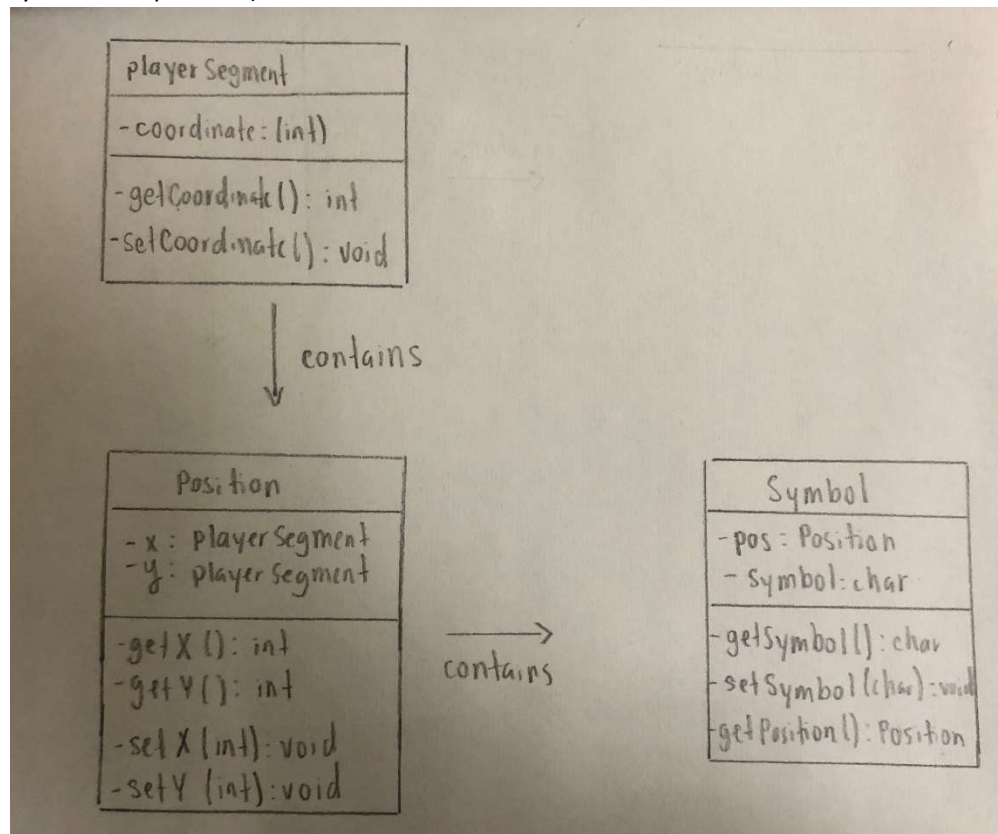 playerSegment
-coordinate: (int)
-getCoordinate(): int
-setCoordinate(): void
contains
Position
-x: playerSegment
-y: playerSegment
-getX(): int
-getY(): int
-setX(int): void
-setY(int): void
contains
Symbol
-pos: Position
-symbol: char
-getSymbol(): char
-setSymbol(char): void
-getPosition(): Position